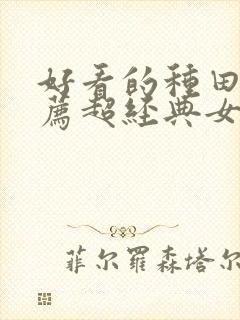 好看的種田
薦超經典女
菲尔羅森塔尔